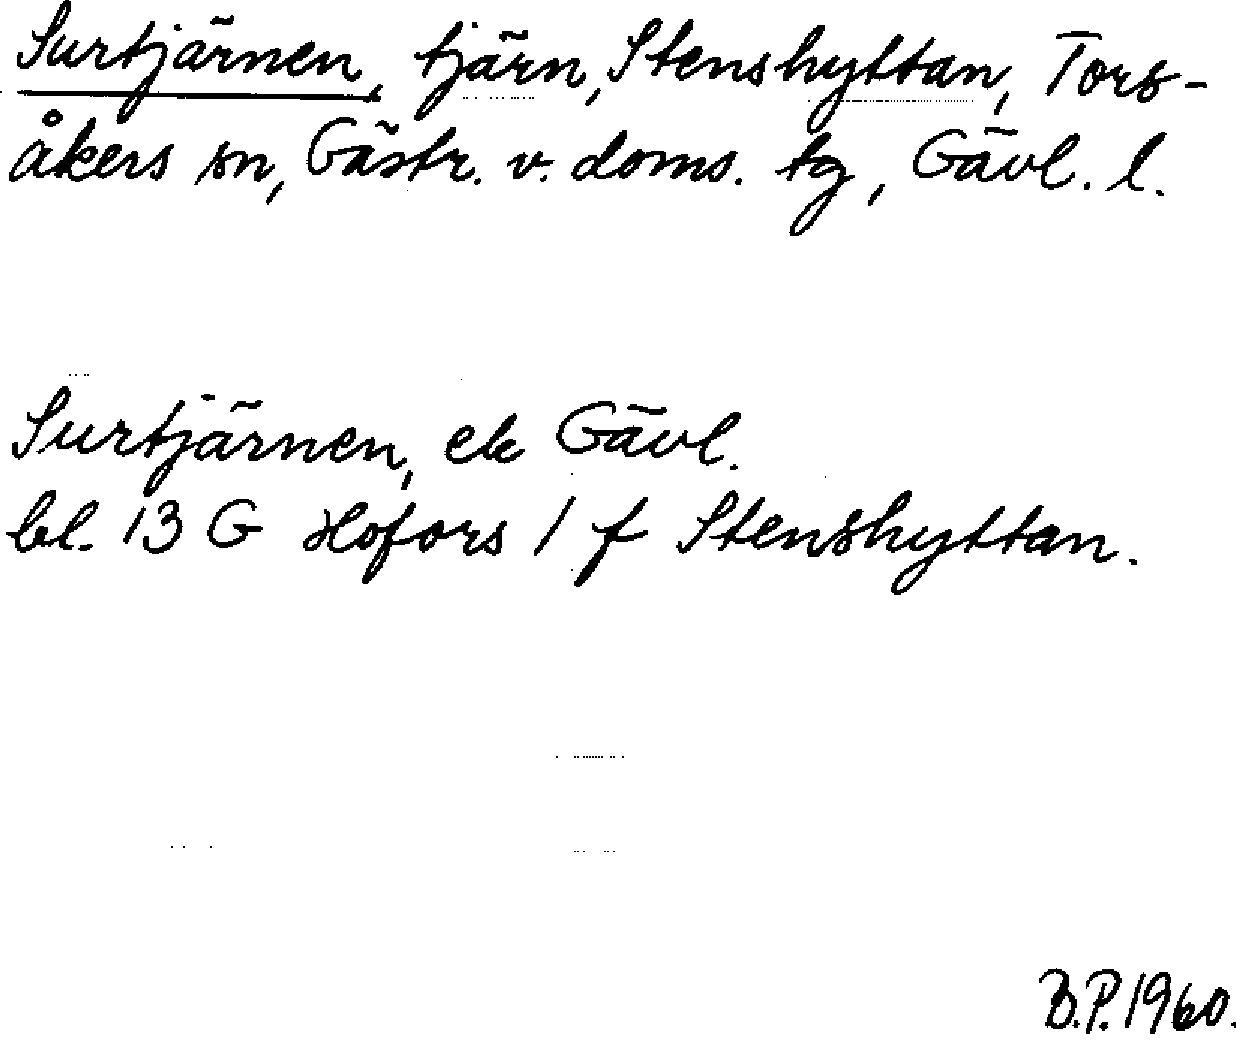 Surtjärnen, tjärn, Stenshyttan, Tors-
åkers sn, Gästr. v. doms. tg, Gävl. l.
Surtjärnen, ek Gävl.
bl. 13 G Hofors 1 f Stenshyttan.
B.P. 1960.